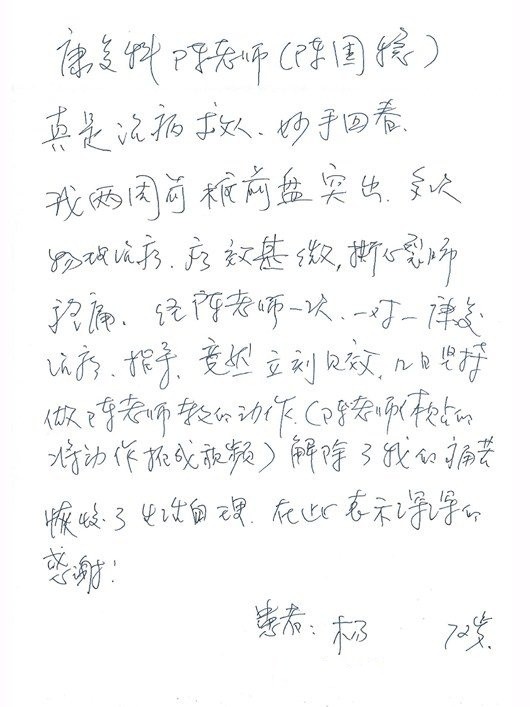 康复科陈老师(陈国稳)
真是治病救人、妙手回春、
我两周前椎间盘突出、多次
物理治疗、疗效甚微,撕心裂肺
疼痛、经陈老师一次、一对一康复
治疗、指导、竟然立刻见效、几日坚持
做陈老师教的动作、(陈老师体贴的
将动作拍成视频)解除了我的痛苦
恢复了生活自理、在此表示深深的
感谢!
患者:杨 72岁、